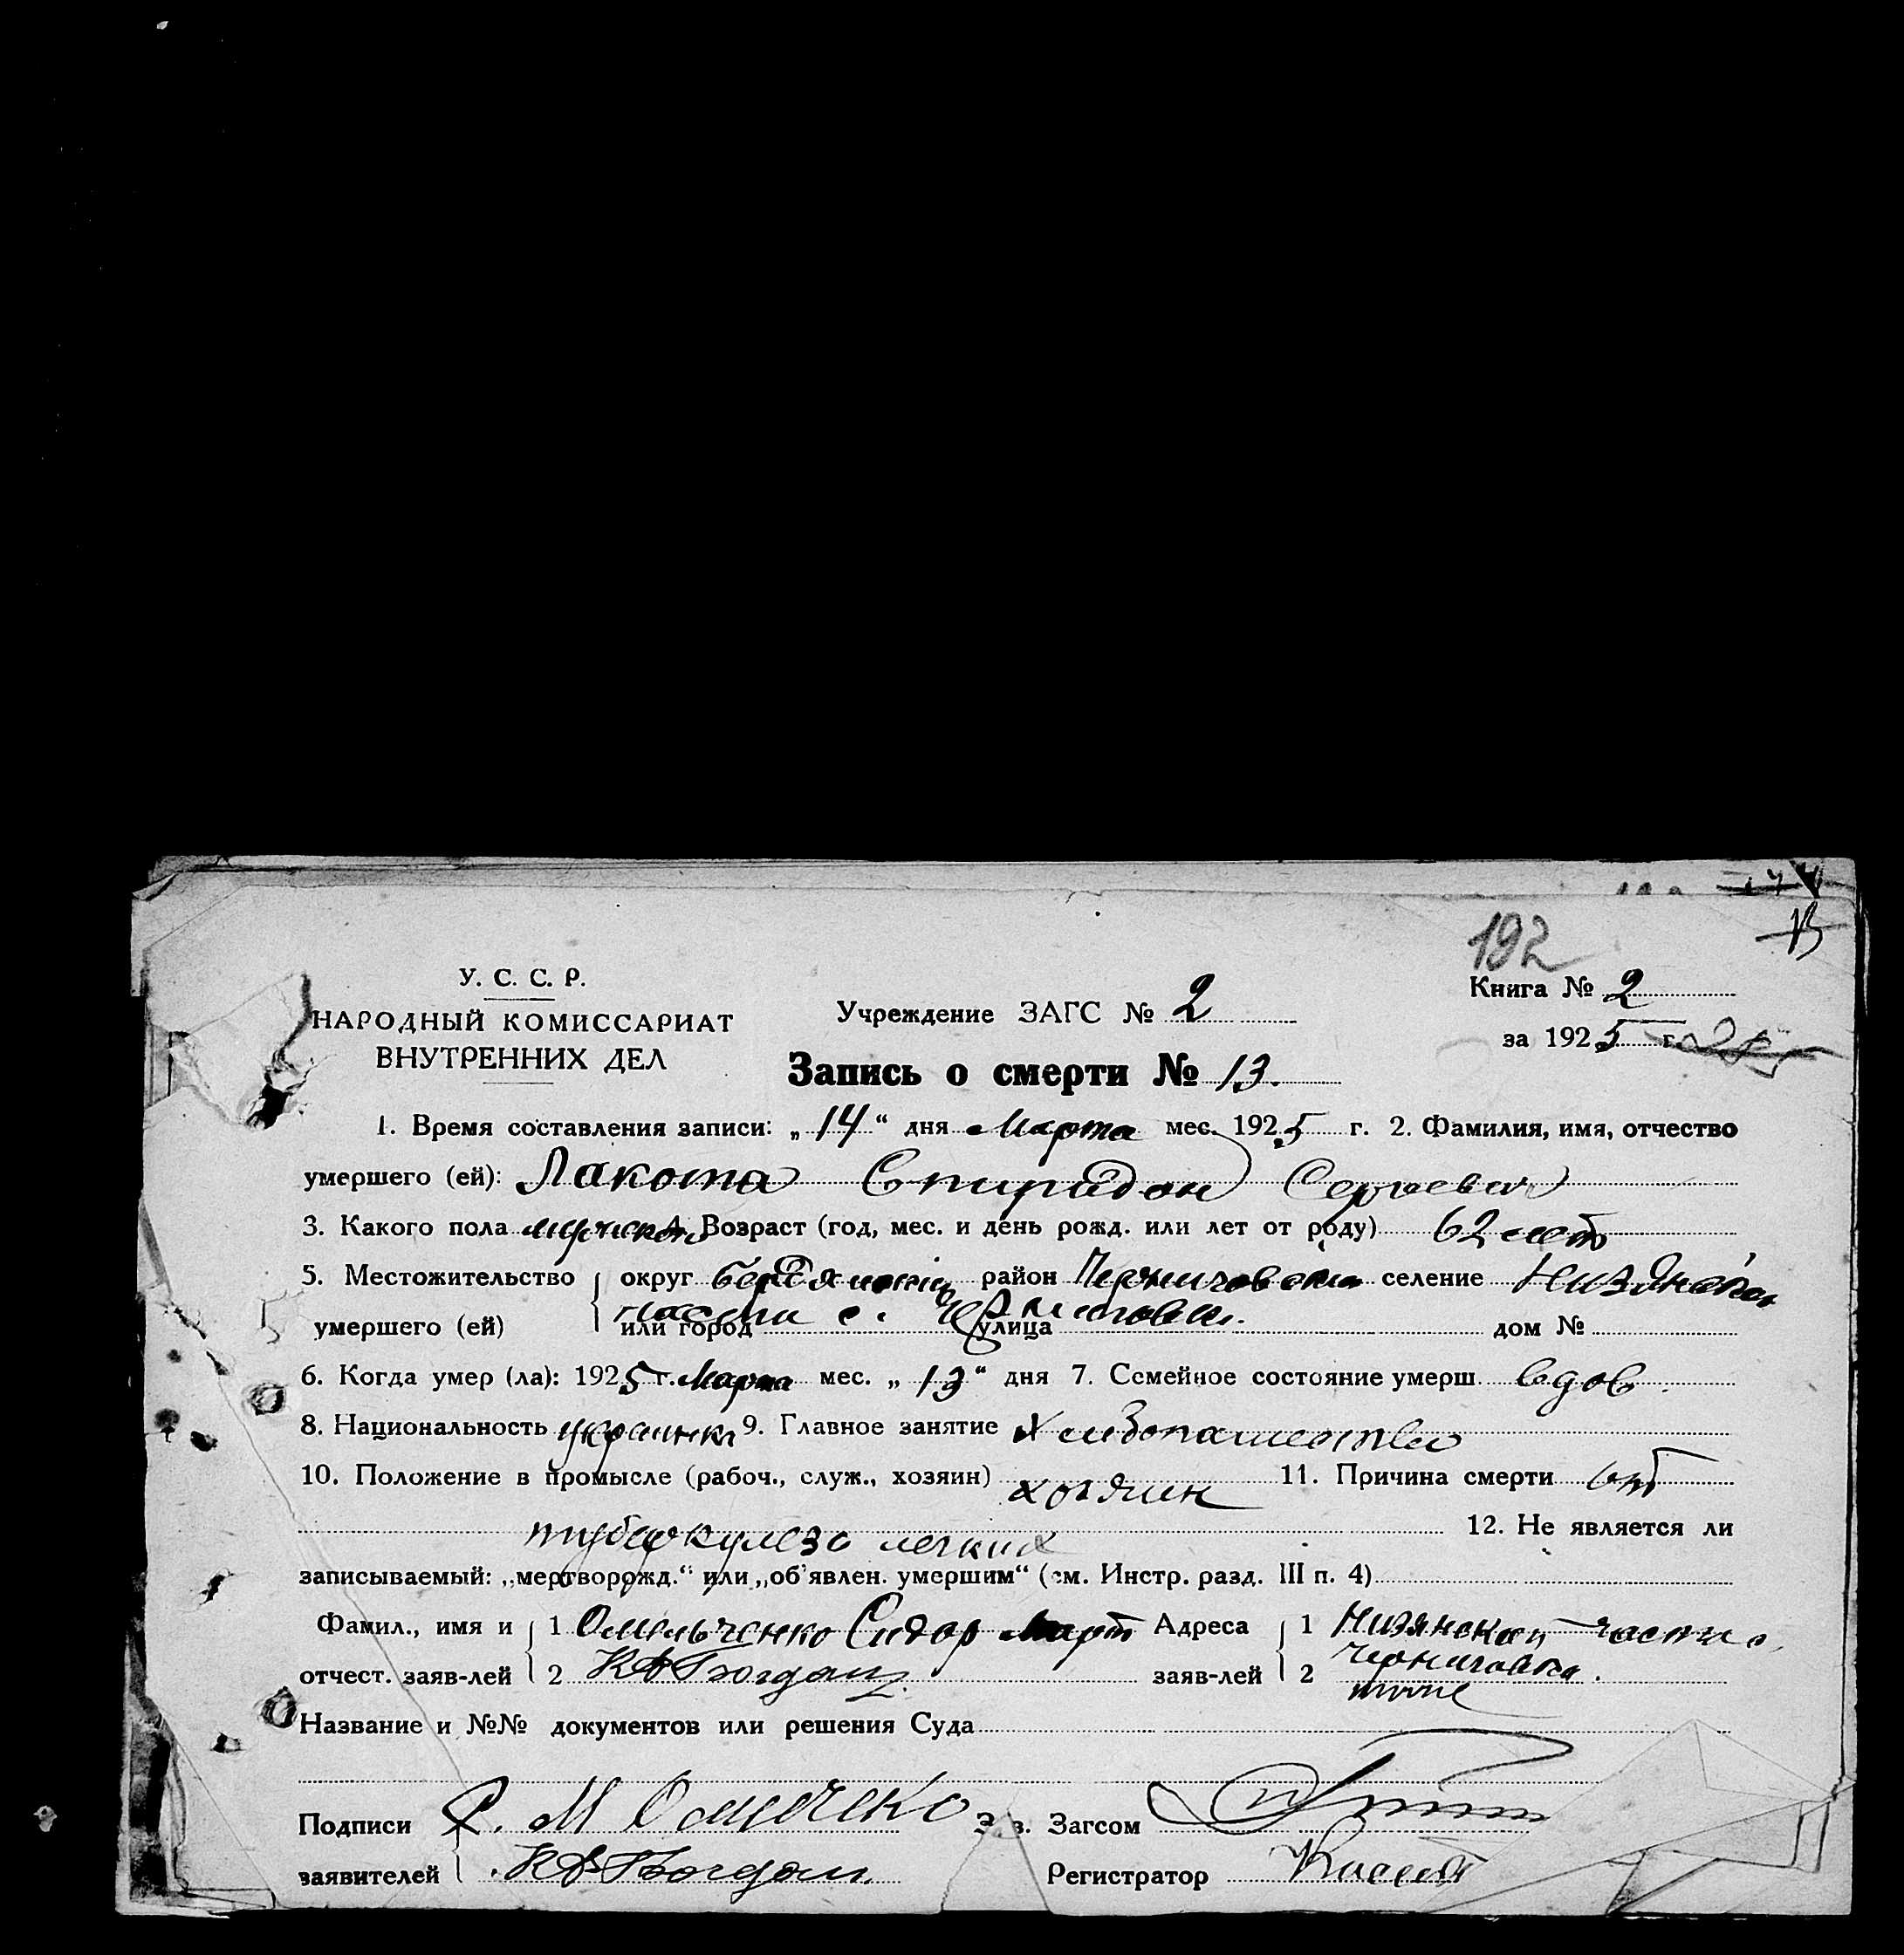 192
13
У. С. С. Р.
НАРОДНЫЙ КОМИССАРИАТ
ВНУТРЕННИХ ДЕЛ
Учреждение ЗАГС № 2
Книга № 2
за 1925 г.
Запись о смерти № 13.
1. Время составления записи: „14“ дня Марта мес. 1925 г. 2. Фамилия, имя, отчество
умершего (ей): Лакота Спиридон Сергеевич
3. Какого пола мужского 4. Возраст (год, мес. и день рожд. или лет от роду) 62 лет
5. Местожительство округ Бердянский район Черниговский селение Низянской
умершего (ей) или город части с. Черниговки. улица дом №
6. Когда умер (ла): 1925 г. Марта мес. „13“ дня 7. Семейное состояние умерш. вдов.
8. Национальность 9. Главное занятие Хлебопашество
10. Положение в промысле (рабоч., служ., хозяин) хозяин 11. Причина смерти от
туберкулеза легких 12. Не является ли
записываемый: „мертворожд.“ или „об'явлен. умершим“ (см. Инстр. разд. III п. 4)
Фамил., имя и 1 Омельченко Сидор Март Адреса 1 Низянской части с.
Черниговка.
отчест. заяв-лей 2 КА Богдан заяв-лей 2 тоже
Название и №№ документов или решения Суда
Подписи С. М Омелечко Зав. Загсом
заявителей КА Богдан Регистратор